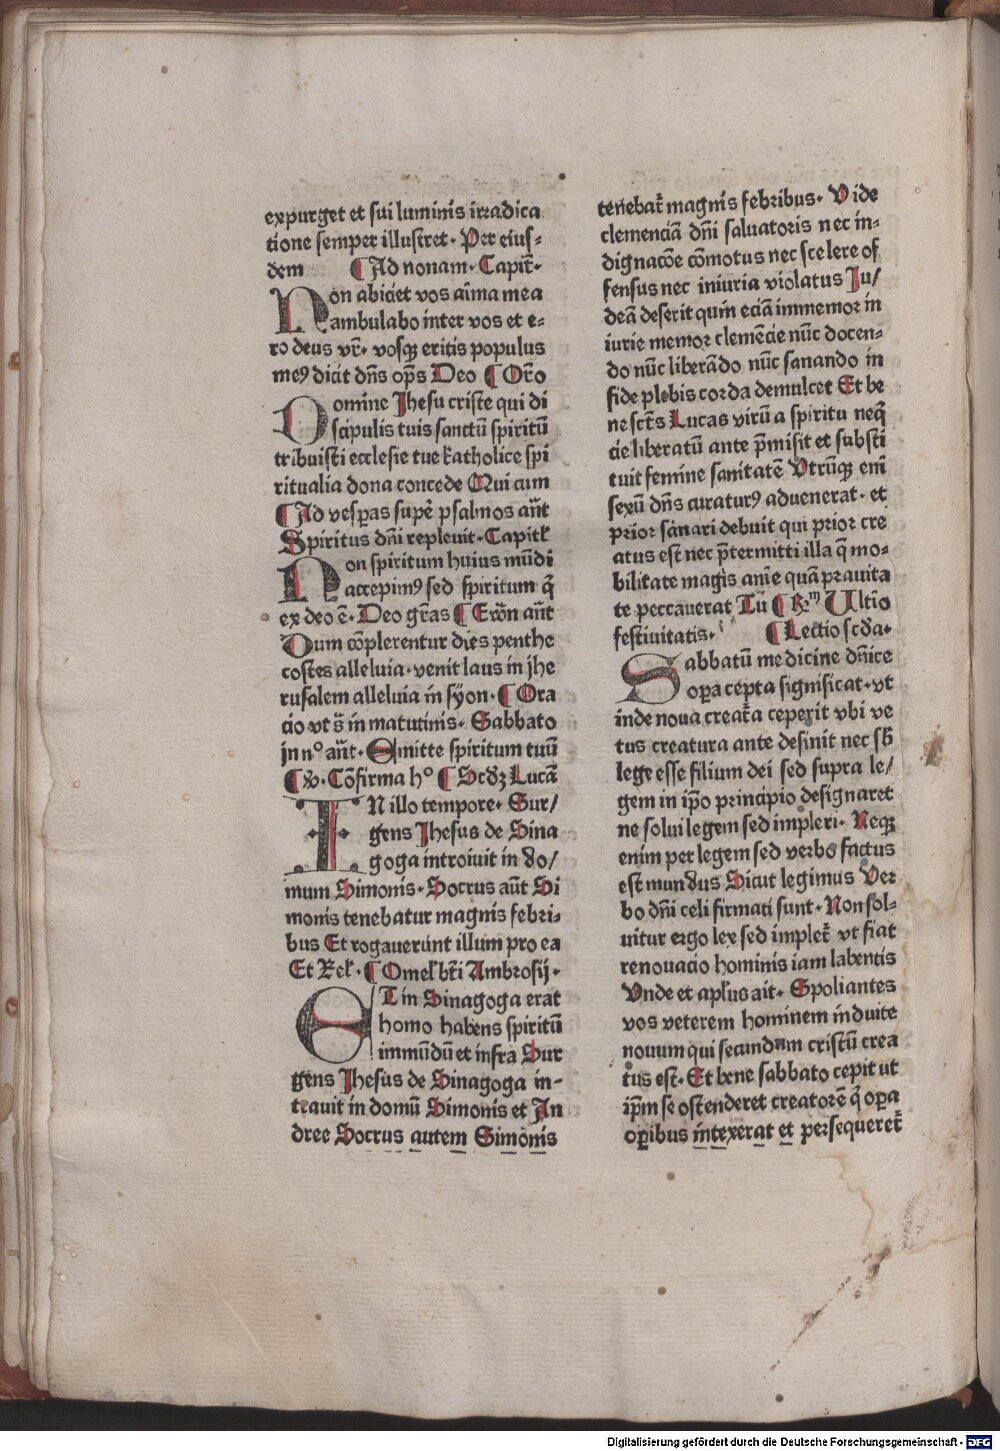 expurget et sui luminis irradica
tione semper illustret. Per eius⸗
dem ¶ Ad nonam. Capit̄.
Non abiciet vos aīma mea
ambulabo inter vos et e⸗
ro deus vr̄. vosqꝫ eritis populus
meꝰ dicit dn̄s op̄s Deo ¶ Or̄o
Domine Jhesu criste qui di
scipulis tuis sanctū spiritū
tribuisti ecclesie tue katholice spi
ritualia dona concede Qui cum
¶ Ad vesꝑas supꝛ̄ psalmos an̄t
Spiritus dn̄i repleuit. Capitl̄
Non spiritum huius mūdi
accepimꝰ sed spiritum q̄
ex deo ē. Deo gr̄as ¶ Ewn̄ an̄t
Dum cōplerentur dies penthe
costes alleluia. venit laus in jhe
rusalem alleluia in syon. ¶ Ora
cio vt s̄ in matutinis. Sabbato
in nº an̄t. Emitte spiritum tuū
¶ v̄. Cōfirma hº ¶ Scd̄ꝫ Lucā
IN illo tempore. Sur/
gens Jhesus de Sina
goga introiuit in do/
mum Simonis. Socrus aūt Si
monis tenebatur magnis febri⸗
bus Et rogauerunt illum pro ea
Et Rel̄. ¶ Omel̄ bt̄i Ambrosij.
ET in Sinagoga erat
homo habens spiritū
immūdū et infra Sur
gens Jhesus de Sinagoga in⸗
trauit in domū Simonis et An
dree Socrus autem Simonis
tenebat̄ magnis febribus. Vide
clemenciā dn̄i saluatoris nec in⸗
dignacōe cōmotus nec scelere of
fensus nec iniuria violatus Ju/
deā deserit quin eciā immemor in
iurie memor clemēcie nūc docen⸗
do nūc liberādo nūc sanando in
fide plebis corda demulcet Et be
ne sct̄s Lucas virū a spiritu neqͣ
cie liberatū ante p̄misit et substi
tuit femine sanitatē Vtrūqꝫ enī
sexū dn̄s curaturꝰ aduenerat. et
prior sanari debuit qui prior cre
atus est nec p̄termitti illa q̄ mo⸗
bilitate magis anīe quā prauita
te peccauerat Tū ¶ Rm̄ Ultīo
festiuitatis. ¶ Lectio scd̄a.
Sabbatū medicine dn̄ice
oꝑa cepta significat. vt
inde noua creat̄a ceperit vbi ve
tus creatura ante desinit nec sb̄
lege esse filium dei sed supra le/
gem in ip̄o principio designaret
ne solui legem sed impleri. Neqꝫ
enim per legem sed verbo factus
est mundus Sicut legimus Ver
bo dn̄i celi firmati sunt. Non sol⸗
uitur ergo lex sed implet̄ vt fiat
renouacio hominis iam labentis
Vnde et apl̄us ait. Spoliantes
vos veterem hominem induite
nouum qui secundum cristū crea
tus est. Et bene sabbato cepit ut
ip̄m se ostenderet creatorē q̄ oꝑa
oꝑibus intexerat et persequeret̄
Digitalisierung gefördert durch die Deutsche Forschungsgemeinschaft - DFG